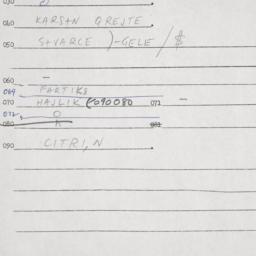 030
040 KARSTN GREJTE
050 STVARCE )-GELE / $
060 —
069 FARTIKS
070 HAJLIK 090080 072 —
072
080 081
090 CITRI,N